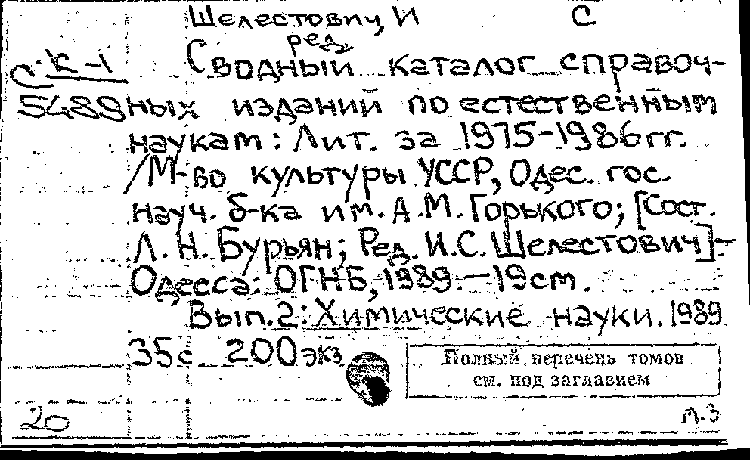 Шелестович, И С
ред.
С.К-1 Сводный каталог справоч-
5489 ных изданий по естественным
наукам: Лит. за 1975-1986 гг.
/М-во культуры УССР, Одес. гос.
науч. б-ка им. А.М. Горького; [Сост.
Л.Н. Бурьян; Ред. И.С. Шелестович].-
Одесса: ОГНБ, 1989.—19 см.
Вып.2: Химические науки. 1989
35 с 200 экз
Полный перечень томов
см. под заглавием
20 м.3